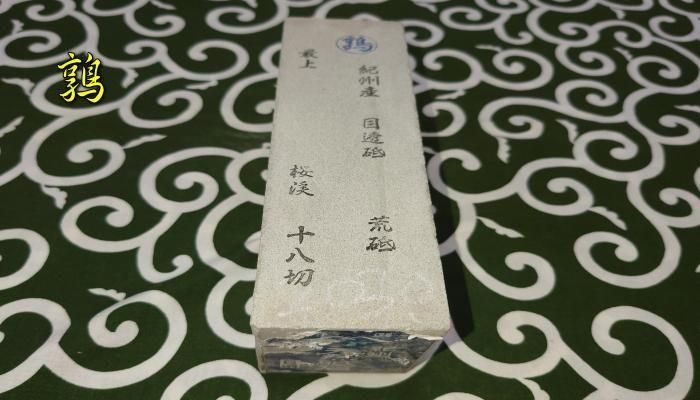 鶉
鶉
紀州産 目違砥 荒砥
最上 桜渓 十八切